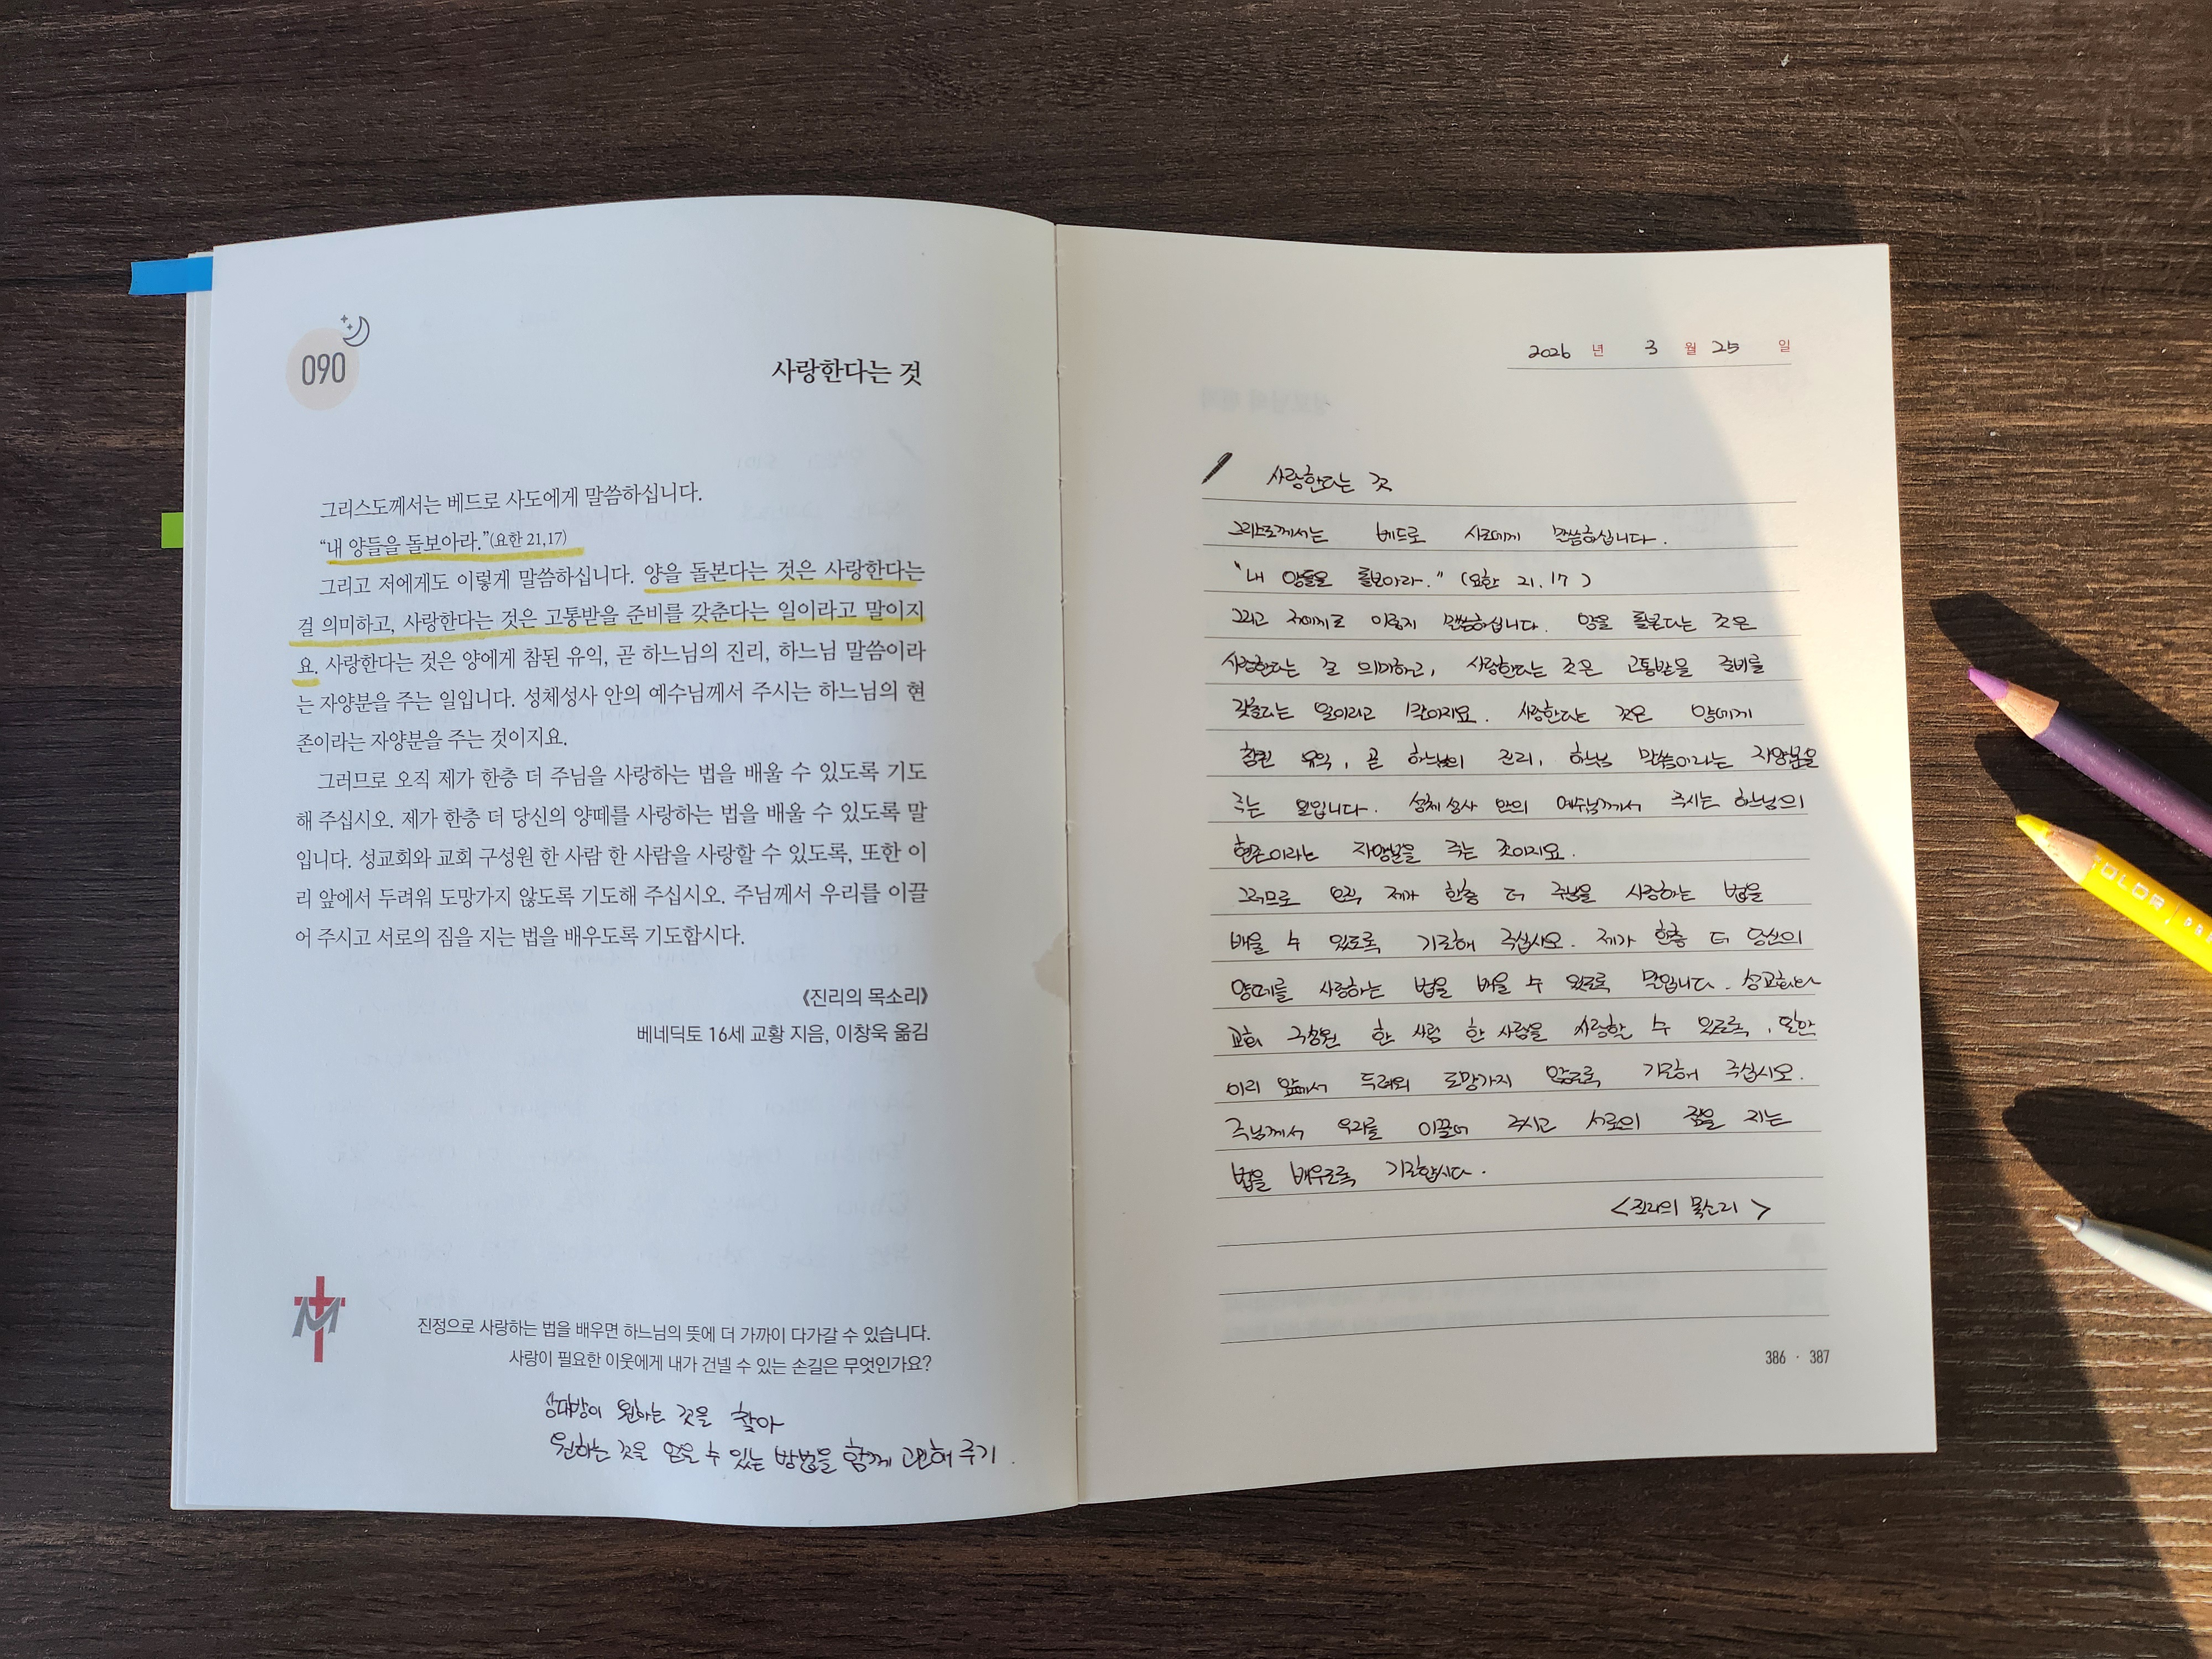 090
사랑한다는 것
그리스도께서는 베드로 사도에게 말씀하십니다.
“내 양들을 돌보아라.”(요한 21,17)
그리고 저에게도 이렇게 말씀하십니다. 양을 돌본다는 것은 사랑한다는
걸 의미하고, 사랑한다는 것은 고통받을 준비를 갖춘다는 일이라고 말이지
요. 사랑한다는 것은 양에게 참된 유익, 곧 하느님의 진리, 하느님 말씀이라
는 자양분을 주는 일입니다. 성체성사 안의 예수님께서 주시는 하느님의 현
존이라는 자양분을 주는 것이지요.
그러므로 오직 제가 한층 더 주님을 사랑하는 법을 배울 수 있도록 기도
해 주십시오. 제가 한층 더 당신의 양떼를 사랑하는 법을 배울 수 있도록 말
입니다. 성교회와 교회 구성원 한 사람 한 사람을 사랑할 수 있도록, 또한 이
리 앞에서 두려워 도망가지 않도록 기도해 주십시오. 주님께서 우리를 이끌
어 주시고 서로의 짐을 지는 법을 배우도록 기도합시다.
《진리의 목소리》
베네딕토 16세 교황 지음, 이창욱 옮김
M
진정으로 사랑하는 법을 배우면 하느님의 뜻에 더 가까이 다가갈 수 있습니다.
사랑이 필요한 이웃에게 내가 건넬 수 있는 손길은 무엇인가요?
상대방이 원하는 것을 찾아
원하는 것을 얻을 수 있는 방법을 함께 고민해 주기.
2026 년 3 월 25 일
사랑한다는 것
그리스도께서는 베드로 사도에게 말씀하십니다.
“내 양들을 돌보아라.” (요한 21. 17)
그리고 저에게도 이렇게 말씀하십니다. 양을 돌본다는 것은
사랑한다는 걸 의미하고, 사랑한다는 것은 고통받을 준비를
갖춘다는 일이라고 말이지요. 사랑한다는 것은 양에게
참된 유익, 곧 하느님의 진리, 하느님 말씀이라는 자양분을
주는 일입니다. 성체성사 안의 예수님께서 주시는 하느님의
현존이라는 자양분을 주는 것이지요.
그러므로 오직 제가 한층 더 주님을 사랑하는 법을
배울 수 있도록 기도해 주십시오. 제가 한층 더 당신의
양떼를 사랑하는 법을 배울 수 있도록 말입니다. 성교회와
교회 구성원 한 사람 한 사람을 사랑할 수 있도록, 또한
이리 앞에서 두려워 도망가지 않도록 기도해 주십시오.
주님께서 우리를 이끌어 주시고 서로의 짐을 지는
법을 배우도록 기도합시다.
<진리의 목소리>
386 · 387